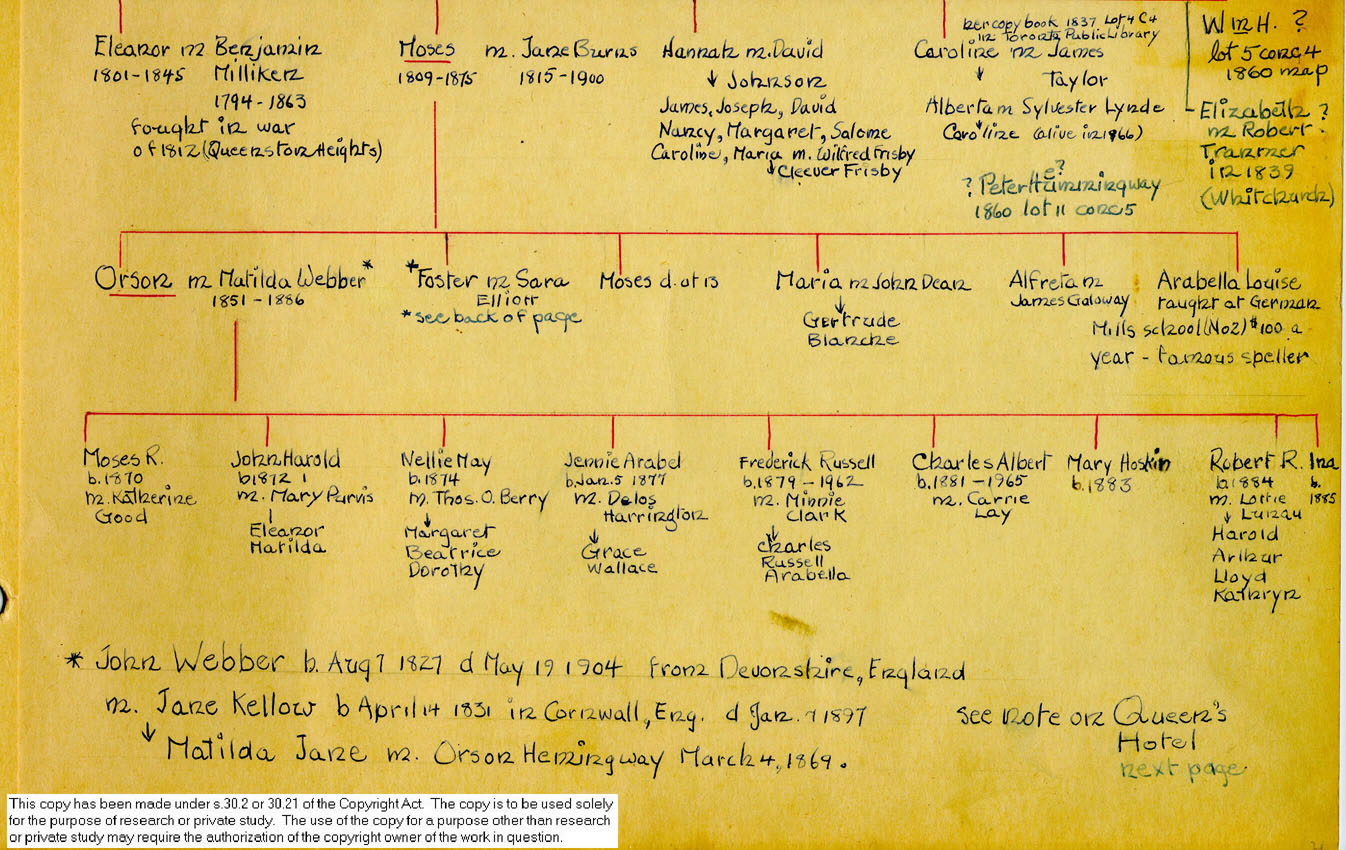 Eleanor m Benjamin
1801-1845 Milliken
1794-1863
fought in war
of 1812 (Queenston Heights)
Moses m. Jane Burns
1809-1875 1815-1900
Hannah m. David
↓ Johnson
James, Joseph, David
Nancy, Margaret, Salome
Caroline, Maria m. Wilfred Frisby
↓ Cleever Frisby
her copy book 1837 Lot 4 C4
in Toronto Public Library
Caroline m James
↓ Taylor
Alberta m Sylvester Lynde
Caroline (alive in 1966)
e?
? Peter Hummingway
1860 lot 11 conc 5
Wm H. ?
lot 5 conc 4
1860 map
Elizabeth ?
m Robert
Tranmer
in 1839
(Whitchurch)
Orson m Matilda Webber*
1851-1886
*Foster m Sara
Elliott
*see back of page
Moses d. at 13
Maria m John Dean
↓
Gertrude
Blanche
Alfreta m
James Galoway
Arabella Louise
taught at German
Mills school (No2) $100 a
year - famous speller
Moses R.
b. 1870
m. Katherine
Good
John Harold
b 1872
m. Mary Purvis
Eleanor
Matilda
Nellie May
b. 1874
m. Thos. O. Berry
↓
Margaret
Beatrice
Dorothy
Jennie Arabel
b. Jan. 5 1877
m. Delos
Harrington
↓
Grace
Wallace
Frederick Russell
b. 1879-1962
m. Minnie
Clark
↓
Charles
Russell
Arabella
Charles Albert
b. 1881-1965
m. Carrie
Lay
Mary Hoskin
b. 1883
Robert R.
b. 1884
m. Lottie
↓ Lunau
Harold
Arthur
Lloyd
Kathryn
Ina
b.
1885
* John Webber b. Aug 7 1827 d May 19 1904 from Devonshire, England
m. Jane Kellow b April 14 1831 in Cornwall, Eng. d Jan. 7 1897
↓ Matilda Jane m. Orson Hemingway March 4, 1869.
see note on Queen's
Hotel
next page
This copy has been made under s.30.2 or 30.21 of the Copyright Act. The copy is to be used solely
for the purpose of research or private study. The use of the copy for a purpose other than research
or private study may require the authorization of the copyright owner of the work in question.